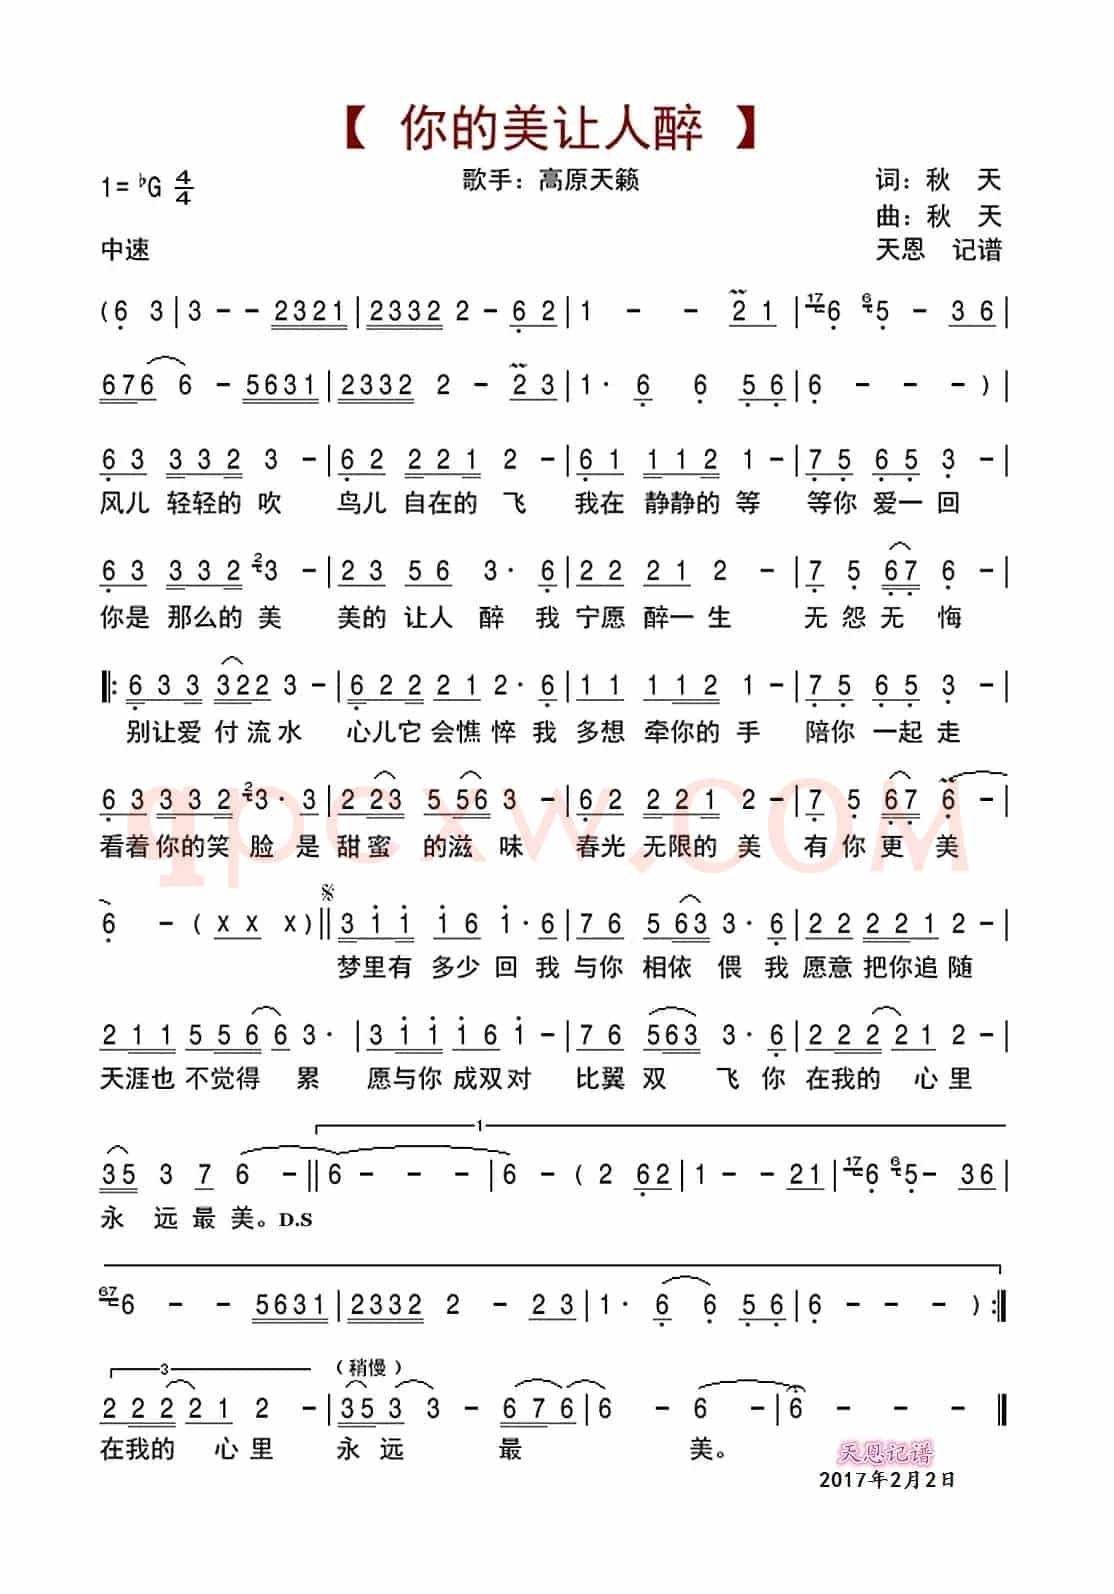 【 你的美让人醉 】
1= ♭G 4/4 歌手：高原天籁 词：秋 天
曲：秋 天
中速 天恩 记谱
( 6 3 | 3 - - 2321 | 2332 2 - 6 2 | 1 - - 2 1 | 17 6 6 5 - 3 6 |
676 6 - 5631 | 2332 2 - 2 3 | 1 · 6 6 5 6 | 6 - - - ) |
6 3 3 3 2 3 - | 6 2 2 2 1 2 - | 6 1 1 1 2 1 - | 7 5 6 5 3 - |
风儿 轻轻的 吹 鸟儿 自在的 飞 我在 静静的 等 等你 爱一 回
6 3 3 3 2 2 3 - | 2 3 5 6 3 · 6 | 2 2 2 1 2 - | 7 5 6 7 6 - |
你是 那么的 美 美的 让人 醉 我 宁愿 醉一 生 无 怨 无 悔
‖: 6 3 3 3 2 2 3 - | 6 2 2 2 1 2 · 6 | 1 1 1 1 2 1 - | 7 5 6 5 3 - |
别让爱 付 流 水 心儿它 会憔 悴 我 多想 牵你的 手 陪你 一起 走
6 3 3 3 2 2 3 · 3 | 2 2 3 5 5 6 3 - | 6 2 2 2 1 2 - | 7 5 6 7 6 - |
看着 你的笑 脸 是 甜 蜜 的滋 味 春光 无限的 美 有 你 更 美
qpcxw.com
6 - ( X X X ) ‖ 3 1 1 1 6 1 · 6 | 7 6 5 6 3 3 · 6 | 2 2 2 2 2 1 2 - |
梦里有 多少 回 我 与你 相依 偎 我 愿意 把你追 随
2 1 1 5 5 6 6 3 · | 3 1 1 1 6 1 - | 7 6 5 6 3 3 · 6 | 2 2 2 2 2 1 2 - |
天涯也 不觉得 累 愿与你 成双 对 比翼 双 飞 你 在我的 心 里
1
3 5 3 7 6 - ‖ 6 - - - | 6 - ( 2 6 2 | 1 - - 2 1 | 17 6 6 5 - 3 6 |
永 远 最 美。 D.S
67 6 - - 5631 | 2332 2 - 2 3 | 1 · 6 6 5 6 | 6 - - - ) :‖
3 （稍慢）
2 2 2 2 2 1 2 - | 3 5 3 3 - 6 7 6 | 6 - 6 - | 6 - - ‖
在我的 心 里 永 远 最 美。
天恩记谱
2017年2月2日